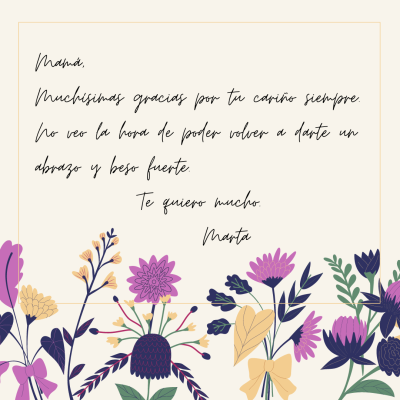 Mamá,
Muchísimas gracias por tu cariño siempre.
No veo la hora de poder volver a darte un
abrazo y beso fuerte.
Te quiero mucho.
Marta